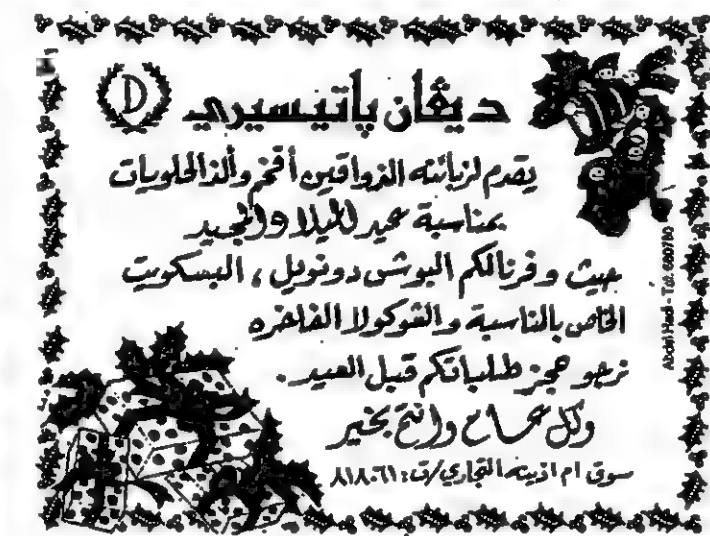 ديڤان پاتيسيري D
يقدم لزبائنه الذواقين أفخم وألذ الحلويات
بمناسبة عيد الميلاد المجيد
حيث وفرنا لكم البوش دو نويل ، البسكويت
الخاص بالمناسبة والشوكولا الفاخره
نرجو حجز طلباتكم قبل العيد .
وكل عام وانتم بخير
سوق ام اذينه التجاري / ت : ٨١٨٠٦١
Abdel Hadi - Tel. 680780